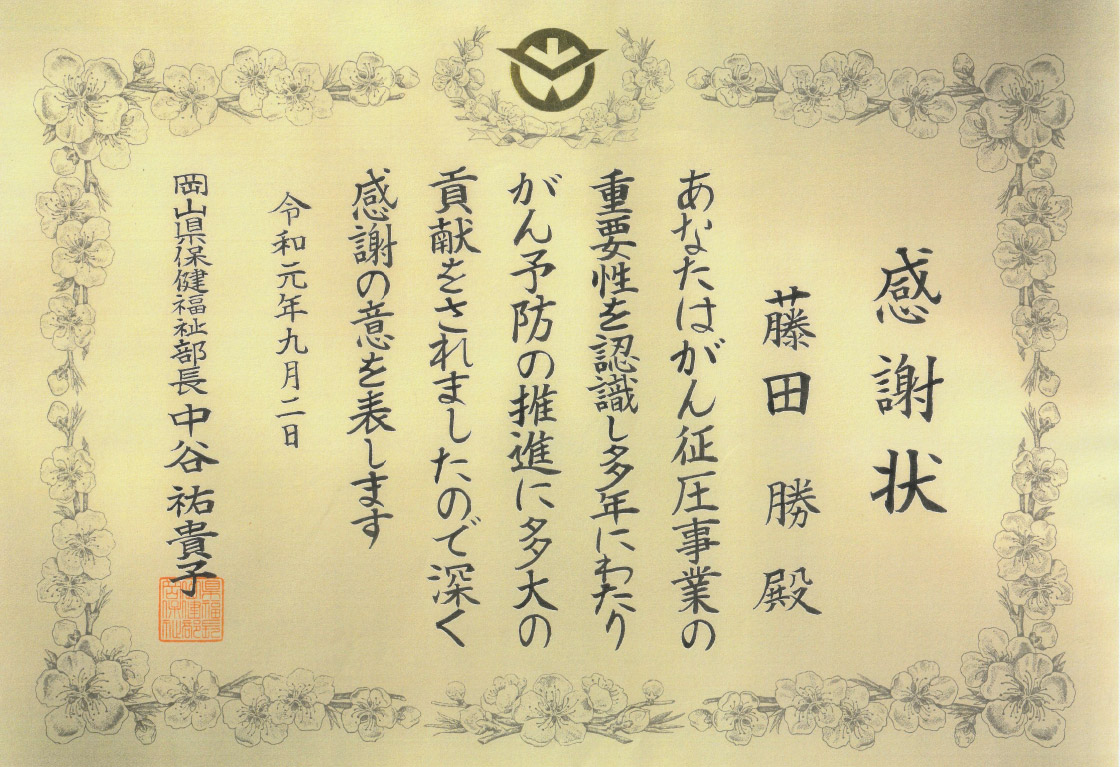 感謝状
藤田勝殿
あなたはがん征圧事業の
重要性を認識し多年にわたり
がん予防の推進に多大の
貢献をされましたので深く
感謝の意を表します
令和元年九月二日
岡山県保健福祉部長中谷祐貴子